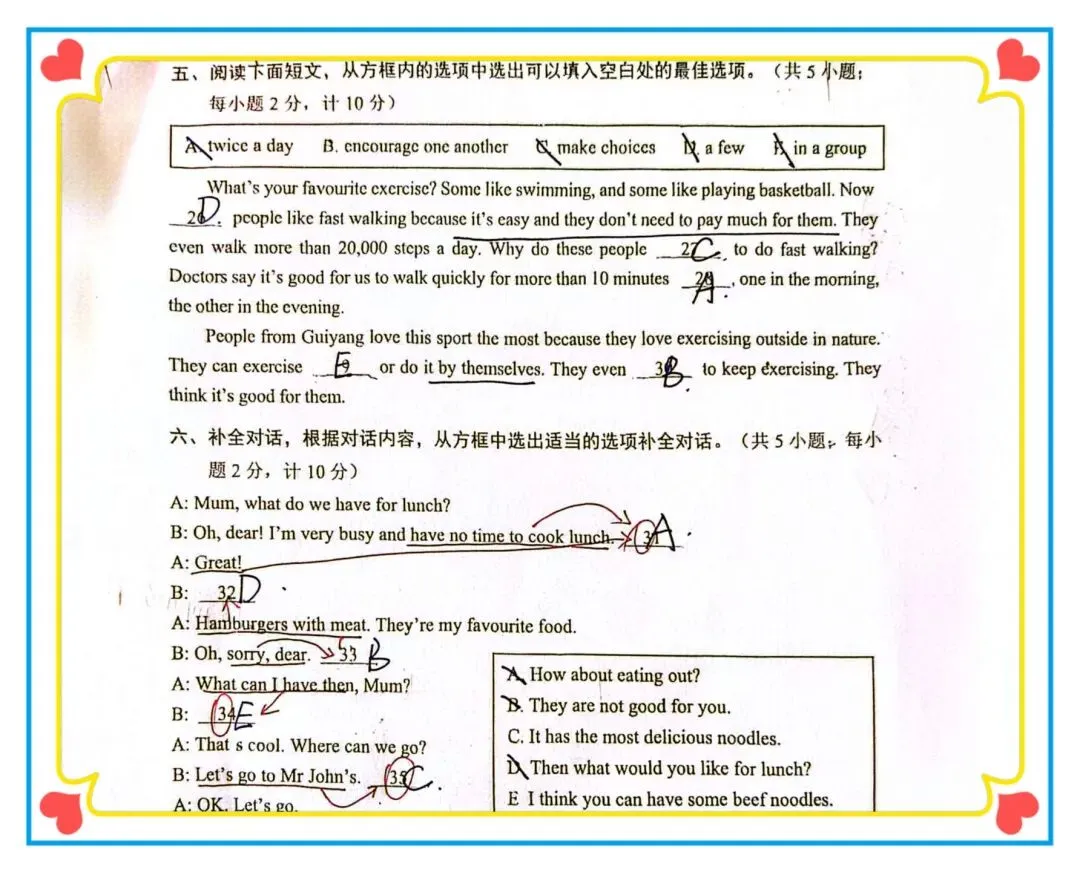 五、阅读下面短文，从方框内的选项中选出可以填入空白处的最佳选项。（共 5 小题；
每小题 2 分，计 10 分）
A. twice a day B. encourage one another C. make choices D. a few E. in a group
What's your favourite exercise? Some like swimming, and some like playing basketball. Now
26 D. people like fast walking because it's easy and they don't need to pay much for them. They
even walk more than 20,000 steps a day. Why do these people 27 C. to do fast walking?
Doctors say it's good for us to walk quickly for more than 10 minutes 28 A., one in the morning,
the other in the evening.
People from Guiyang love this sport the most because they love exercising outside in nature.
They can exercise 29 E or do it by themselves. They even 30 B. to keep exercising. They
think it's good for them.
六、补全对话，根据对话内容，从方框中选出适当的选项补全对话。（共 5 小题；每小
题 2 分，计 10 分）
A: Mum, what do we have for lunch?
B: Oh, dear! I'm very busy and have no time to cook lunch. 31 A.
A: Great!
B: 32 D.
A: Hamburgers with meat. They're my favourite food.
B: Oh, sorry, dear. 33 B
A: What can I have then, Mum?
B: 34 E
A: That s cool. Where can we go?
B: Let's go to Mr John's. 35 C.
A: OK. Let's go.
A. How about eating out?
B. They are not good for you.
C. It has the most delicious noodles.
D. Then what would you like for lunch?
E I think you can have some beef noodles.